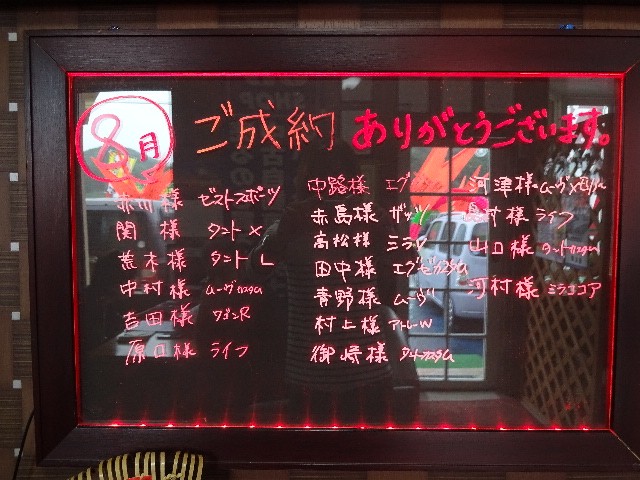 8月 ご成約 ありがとうございます。
赤川様 ゼストスポーツ
関様 タントX
荒木様 タントL
中村様 ムーヴカスタム
吉田様 ワゴンR
原口様 ライフ
中路様 エグゼ
赤島様 ザッツ
高松様 ミラ
田中様 エグゼカスタム
青野様 ムーヴ
村上様 アトレーW
御崎様 タントカスタム
河津様 ムーヴ
村様 ライフ
山口様 タントカスタム
河村様 ミラココア